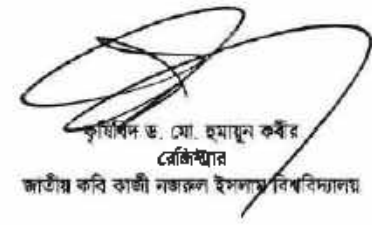 কৃষিবিদ ড. মো. হুমায়ূন কবীর
রেজিস্ট্রার
জাতীয় কবি কাজী নজরুল ইসলাম বিশ্ববিদ্যালয়